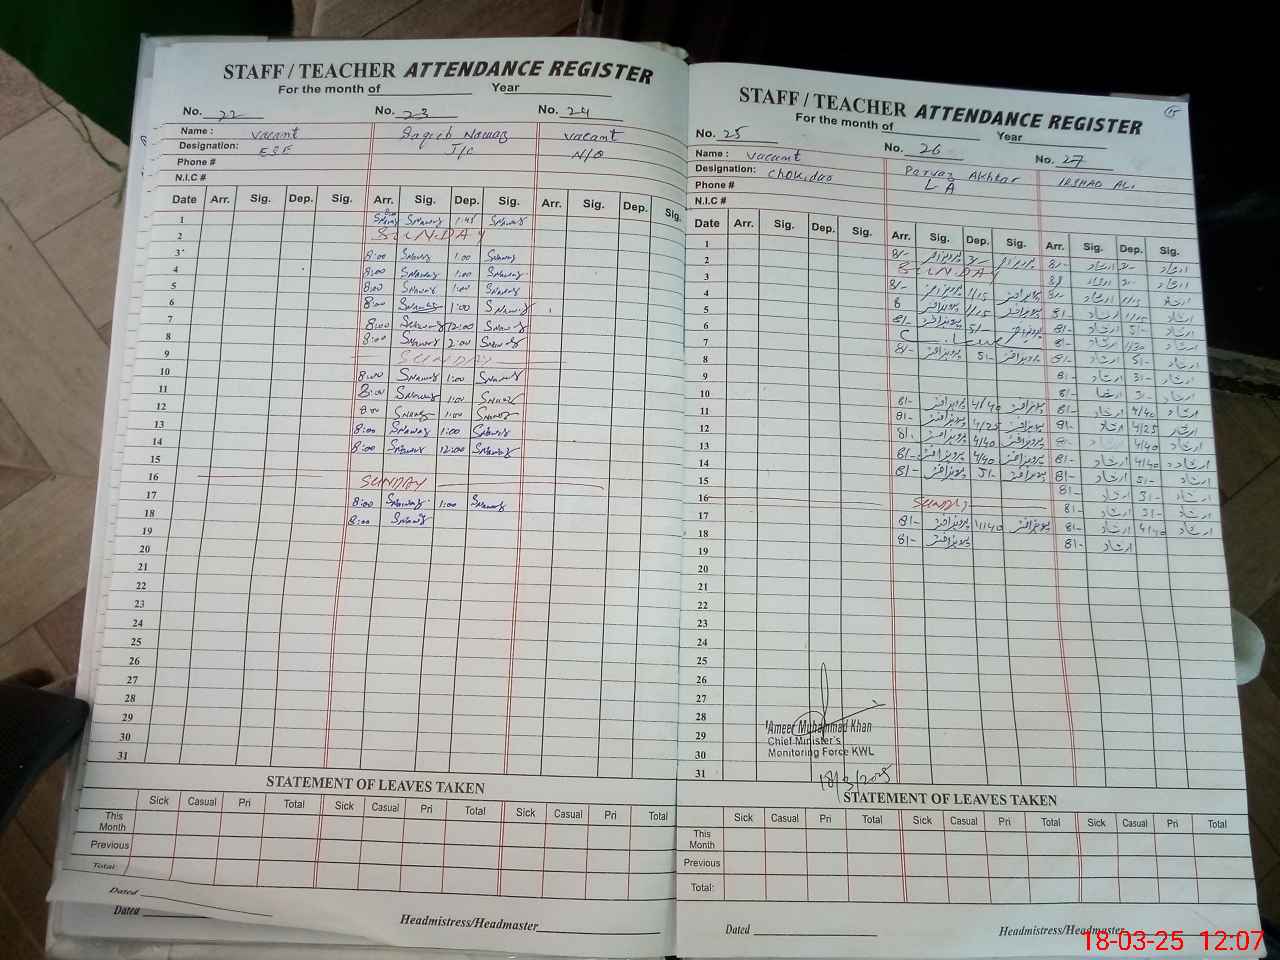 STAFF / TEACHER ATTENDANCE REGISTER
For the month of Year
No. 22 No. 23 No. 24
Name : Vacant Saqeeb Nawaz Vacant
Designation: ESE J/C N/Q
Phone #
N.I.C #
Date Arr. Sig. Dep. Sig. Arr. Sig. Dep. Sig. Arr. Sig. Dep. Sig.
1 8:00 SNawaz SNawaz 1:45 SNawaz
2 SUNDAY
3 8:00 SNawaz 1:00 SNawaz
4 8:00 SNawaz 1:00 SNawaz
5 8:00 SNawaz 1:00 SNawaz
6 8:00 SNawaz 1:00 SNawaz
7 8:00 SNawaz 12:00 SNawaz
8 8:00 SNawaz 2:00 SNawaz
9 SUNDAY
10 8:00 SNawaz 1:00 SNawaz
11 8:00 SNawaz 1:00 SNawaz
12 8:00 SNawaz 1:00 SNawaz
13 8:00 SNawaz 1:00 SNawaz
14 8:00 SNawaz 12:00 SNawaz
15
16 SUNDAY
17 8:00 SNawaz 1:00 SNawaz
18 8:00 SNawaz
19
20
21
22
23
24
25
26
27
28
29
30
31
STATEMENT OF LEAVES TAKEN
Sick Casual Pri Total Sick Casual Pri Total Sick Casual Pri Total
This Month
Previous
Total:
Dated
Dated Headmistress/Headmaster
15
STAFF / TEACHER ATTENDANCE REGISTER
For the month of Year
No. 25 No. 26 No. 27
Name : Vacant Parvaz Akhtar IRSHAD ALi
Designation: Chokidar L A
Phone #
N.I.C #
Date Arr. Sig. Dep. Sig. Arr. Sig. Dep. Sig. Arr. Sig. Dep. Sig.
1 8/- پرویز اختر 2/- پرویز اختر 8/- ارشاد 2/- ارشاد
2 SUNDAY ارشاد ارشاد
3 8/- پرویز اختر 1/15 پرویز اختر ارشاد 1/15 ارشاد
4 8 پرویز اختر 1/15 پرویز اختر 8/- ارشاد 1/15 ارشاد
5 8/- پرویز اختر 5/- پرویز اختر 8/- ارشاد 5/- ارشاد
6 8/- ارشاد 1/30 ارشاد
7 8/- پرویز اختر 5/- پرویز اختر 8/- ارشاد 5/- ارشاد
8 8/- ارشاد 3/- ارشاد
9 8/- 3/- ارشاد
10 8/- پرویز اختر 4/40 پرویز اختر 8/- ارشاد 4/40 ارشاد
11 8/- پرویز اختر 4/25 پرویز اختر 8/- ارشاد 4/25 ارشاد
12 8/. پرویز اختر 4/40 پرویز اختر 8/- ارشاد 4/40 ارشاد
13 8/- پرویز اختر 4/40 پرویز اختر 8/- ارشاد 4/40 ارشاد
14 8/- پرویز اختر 5/- پرویز اختر 8/- ارشاد 5/- ارشاد
15 8/- ارشاد 3/- ارشاد
16 SUNDAY 8/- ارشاد 3/- ارشاد
17 8/- پرویز اختر 1/40 پرویز اختر 8/- ارشاد 4/40 ارشاد
18 8/- پرویز اختر 8/- ارشاد
19
20
21
22
23
24
25
26
27
28
29
30
31
Ameer Muhammad Khan
Chief Minister's
Monitoring Force KWL
18/3/2025
STATEMENT OF LEAVES TAKEN
Sick Casual Pri Total Sick Casual Pri Total Sick Casual Pri Total
This Month
Previous
Total:
Dated Headmistress/Headmaster
18-03-25 12:07